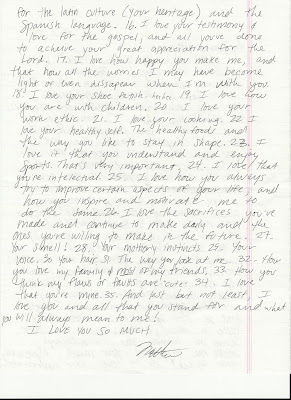 for the latin culture (your heritage) and the
Spanish language. 16. I love your testimony &
love for the gospel, and all you've done
to achieve your great appreciation for the
Lord. 17. I love how happy you make me, and
that how all the worries I may have become
light or even dissapear when I'm with you.
18. I love your shoe fetish haha. 19. I love how
you are with children. 20. I love your
work ethic. 21. I love your cooking. 22 I
love your healthy self. The healthy foods and
the way you like to stay in shape. 23. I
love it that you understand and enjoy
sports. That's very important. 24. I love that
you're intelectual. 25. I love how you always
try to improve certain aspects of your life and
how you inspire and motivate me to
do the same. 26. I love the sacrifices you've
made and continue to make daily and the
ones you're willing to make in the future. 27.
Your smell! 28. Your motherly instincts. 29. Your
voice. 30. Your hair. 31. The way you look at me. 32. How
you love my family & most of my friends. 33. How you
think my flaws or faults are "cute". 34. I love
that you're mine. 35. And last but not least, I
love you and all that you stand for and what
you will always mean to me!
I LOVE YOU SO MUCH